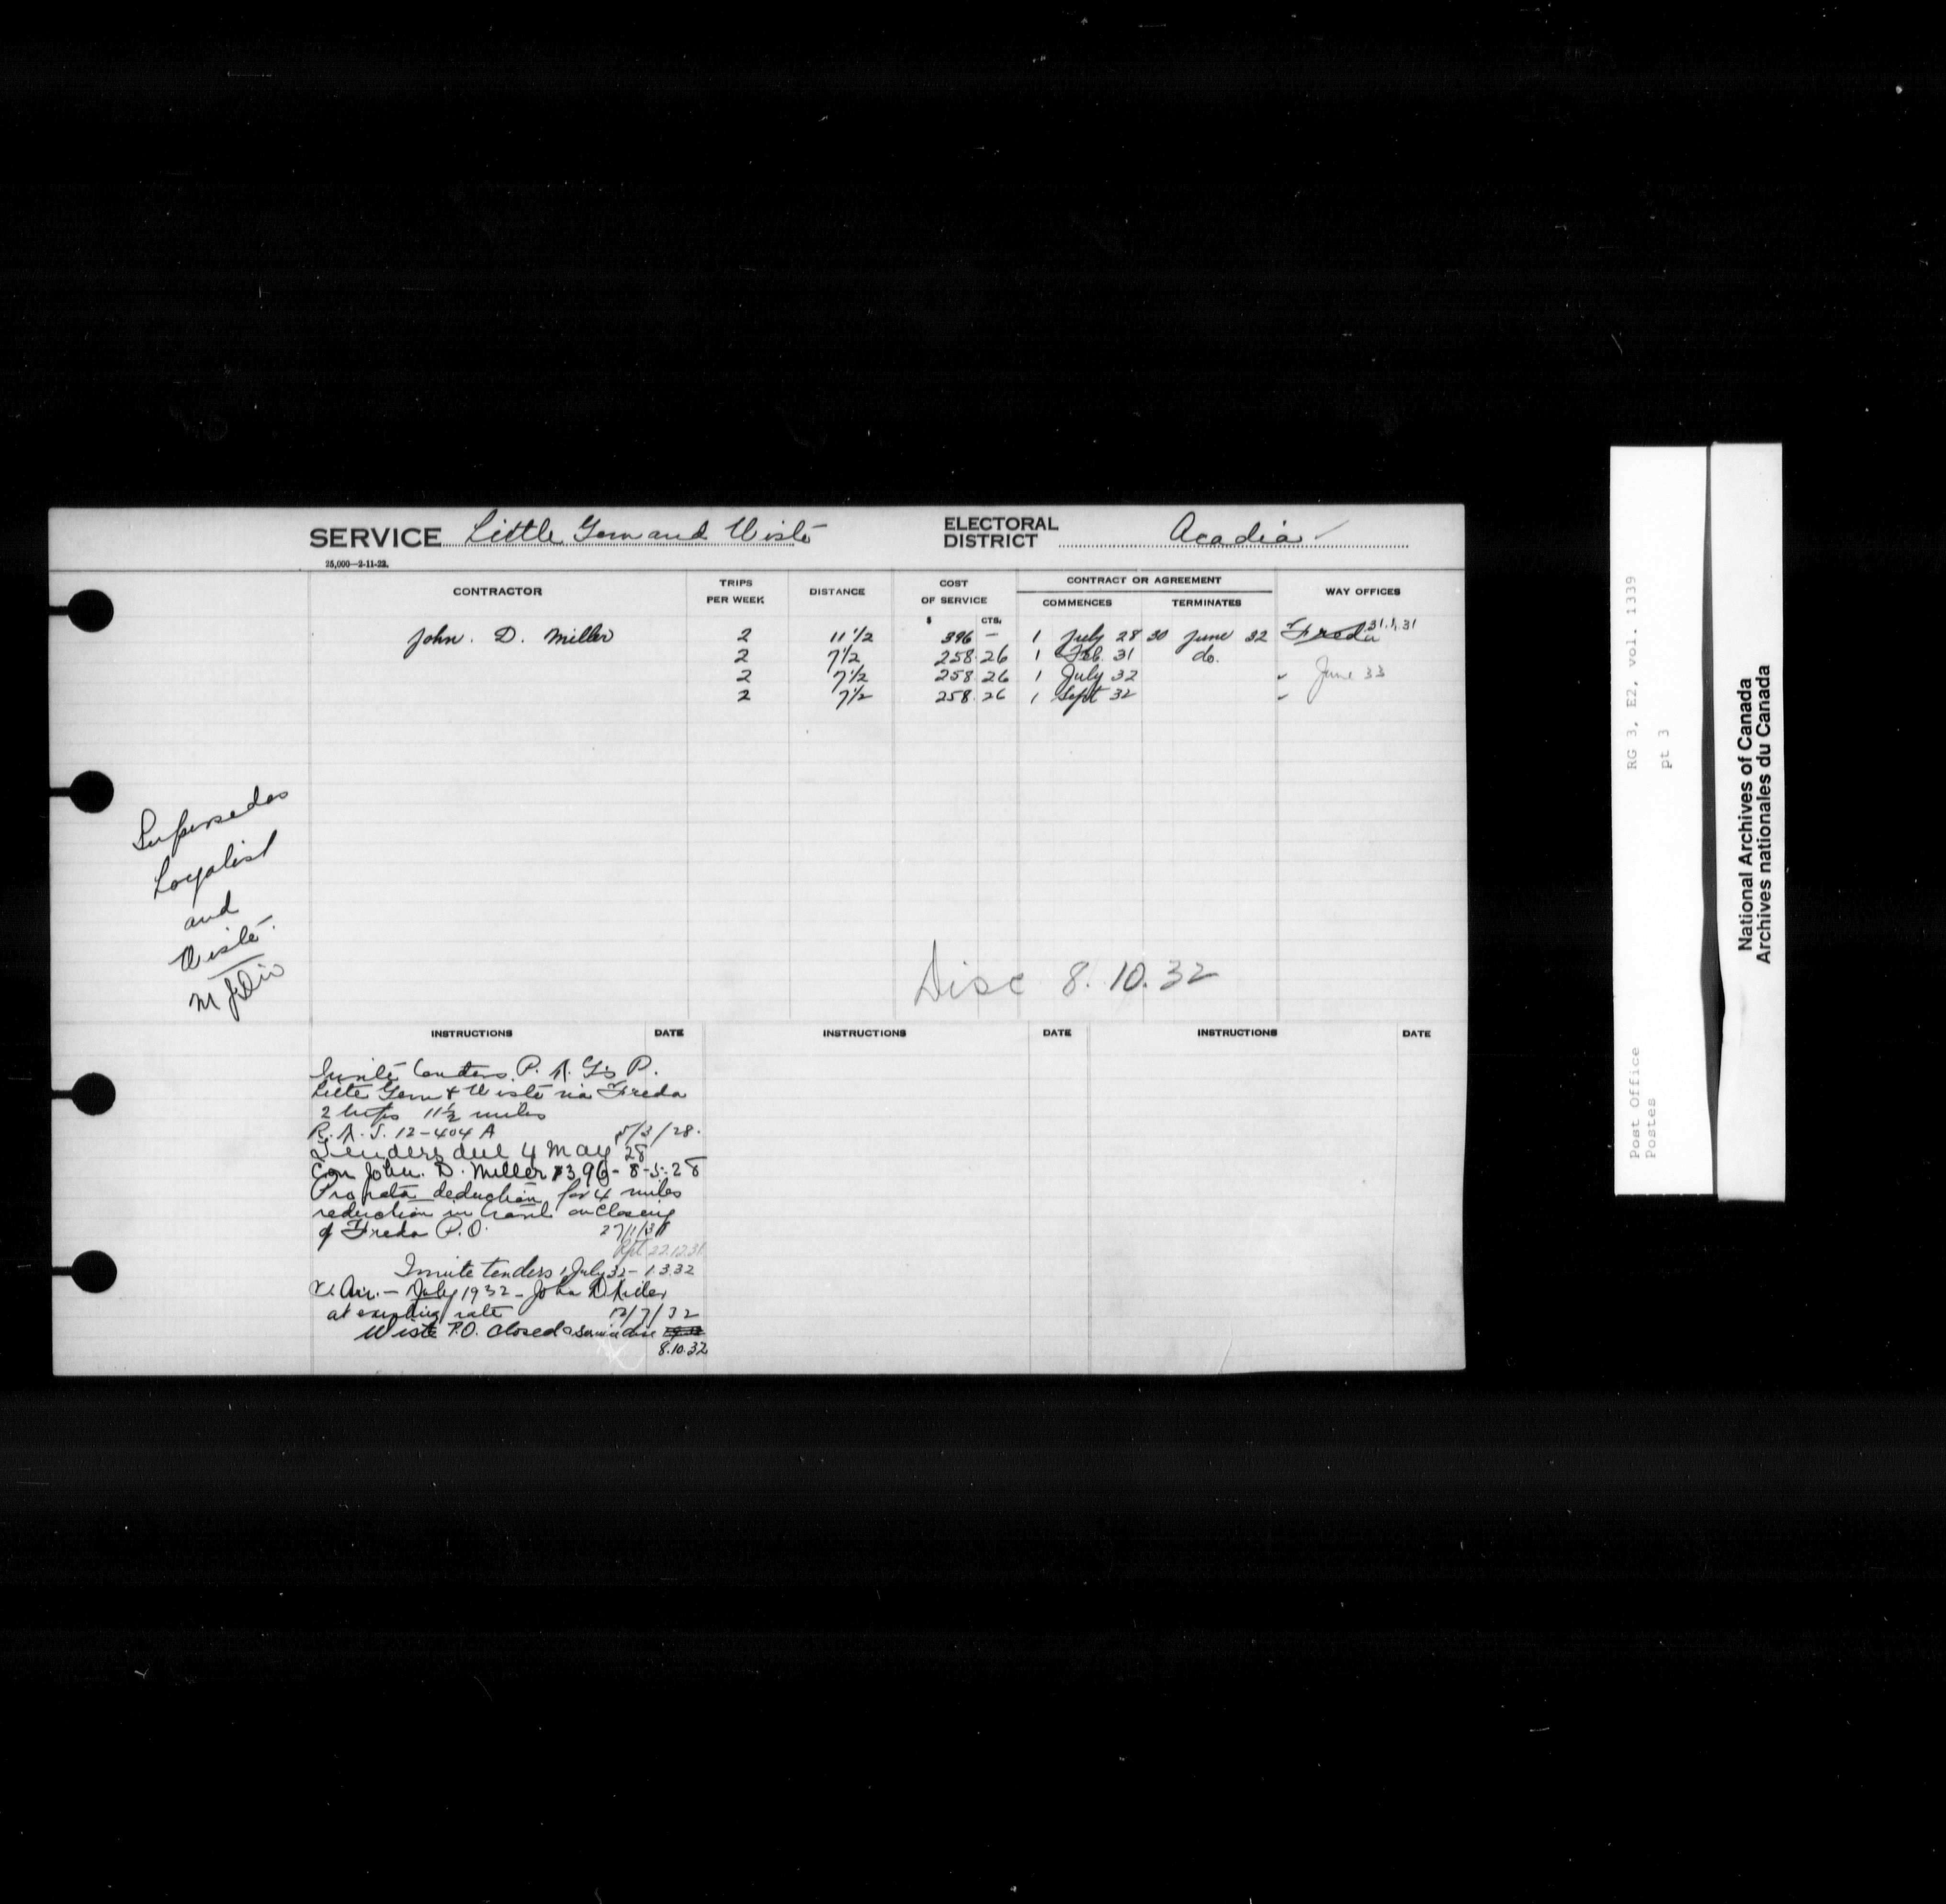 SERVICE Little Gem and Wiste
ELECTORAL DISTRICT Acadia
25,000—2-11-22.
CONTRACTOR TRIPS PER WEEK DISTANCE COST OF SERVICE CONTRACT OR AGREEMENT WAY OFFICES
$ CTS. COMMENCES TERMINATES
John. D. Miller 2 11 1/2 396 — 1 July 28 30 June 32 Freda 31.1.31
2 7 1/2 258.26 1 Feb. 31 do.
2 7 1/2 258 26 1 July 32 " June 33
2 7 1/2 258.26 1 Sept 32 "
Supersedes
Loyalist
and
Wiste.
Disc 8.10.32
INSTRUCTIONS DATE INSTRUCTIONS DATE INSTRUCTIONS DATE
Invite tenders P.
Little Gem & Wiste via Freda
2 trips 11 1/2 miles
12-404 A 5/3/28.
Tenders due 4 May 28
Con John. D. Miller $396- 8-5-28
Pro rata deduction for 4 miles
reduction in travel on closing
of Freda P.O. 27/1/31
22.12.31
Invite tenders 1 July 32 - 1.3.32
July 1932 - John D Miller
at existing rate 12/7/32
Wiste P.O. closed & service disc
8.10.32
RG 3, E2, vol. 1339
pt 3
Post Office
Postes
National Archives of Canada
Archives nationales du Canada